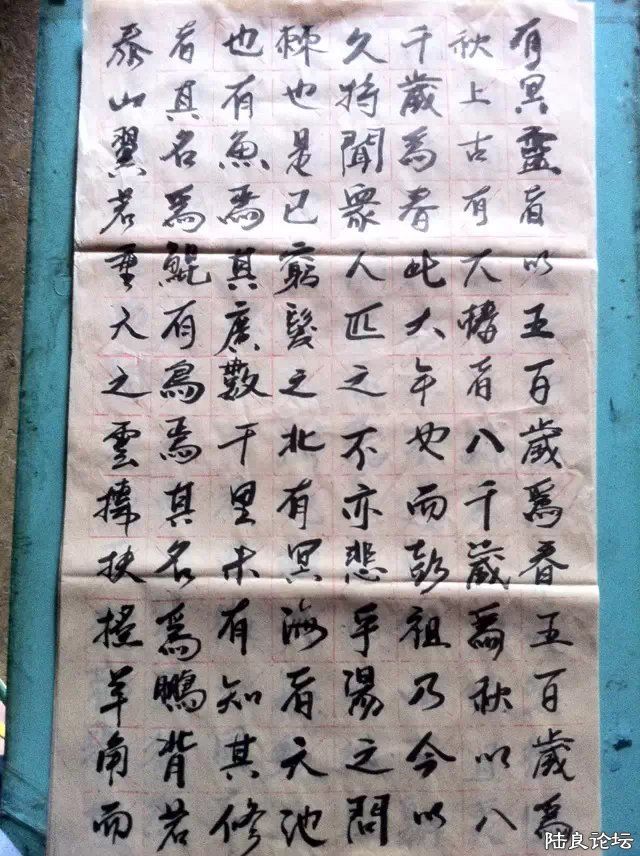 有冥靈者以五百歲爲春五百歲爲
秋上古有大椿者八千歲爲秋以八
千歲爲春此大年也而彭祖乃今以
久特聞眾人匹之不亦悲乎湯之問
棘也是已窮髮之北有冥海者天池
也有魚焉其廣數千里未有知其修
者其名爲鯤有鳥焉其名爲鵬背若
泰山翼若垂天之雲摶扶搖羊角而
陆良论坛